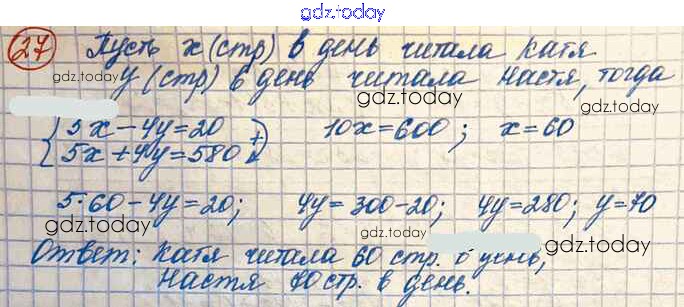 gdz.today
27 Пусть x (стр) в день читала Катя
gdz.today y (стр) в день читала Настя, тогда
gdz.today gdz.today
{ 5x - 4y = 20 + 10x = 600; x = 60
5x + 4y = 580
5·60 - 4y = 20; 4y = 300 - 20; 4y = 280; y = 70
gdz.today gdz.today
Ответ: Катя читала 60 стр. в день, gdz.today
Настя 70 стр. в день.